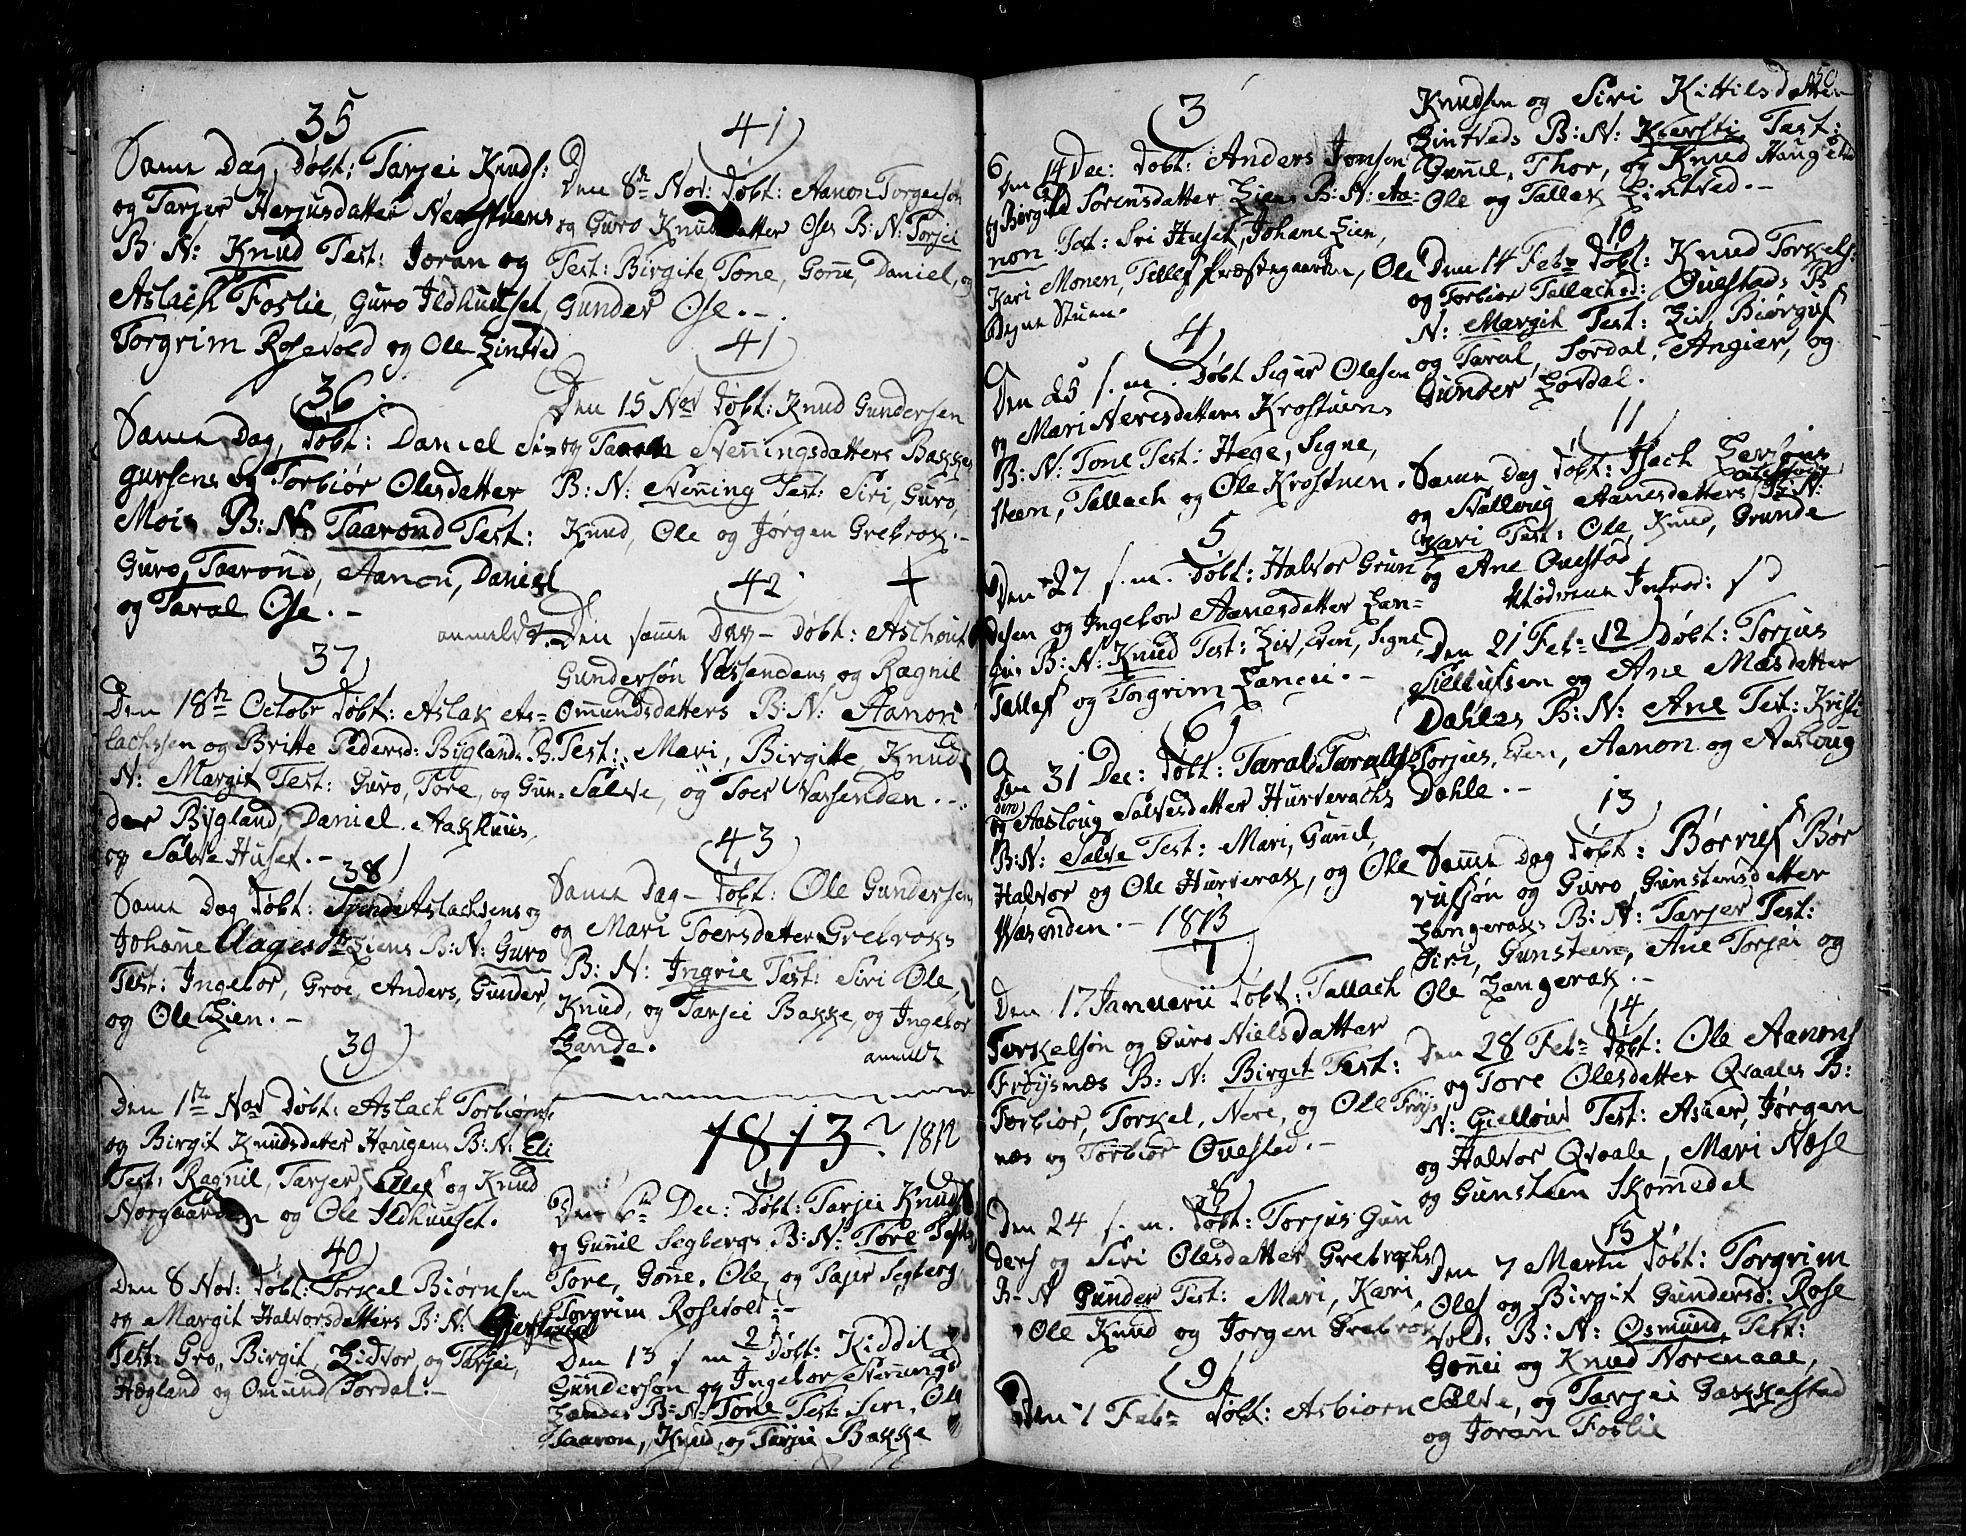 35
Samme Dag, Døbt: Tarjei Knuds:
og Tarjer Herjusdatter Nerstuens
B: N: Knud Test: Joran og
Aslach Foslie, Guro Ildhuuset,
Torgrim Rosevold og Ole Lintved
36
Samme Dag, Døbt: Daniel Si=
gursens og Torbiør Olesdatter
Moi B: N: Taarond Test:
Guro, Taarond, Aanon, Daniel
og Taral Ose. -
37
Den 18th Octobr Døbt: Aslak As=
lachssen og Britte Pedersd: Bygland B.
N: Margit Test: Guro, Tore, og Gun=
der Bygland, Daniel Aakhuus,
og Salve Huset. -
38
Samme Dag Døbt: Aslachsens og
Johanne Aagesd Liens B: N: Guro
Test: Ingebor, Groe, Anders, Gunder,
og Ole Lien. -
39
Den 1th Nov Døbt: Aslach Torbiørns
og Birgit Knudsdatter Haugens B: N: Eli
Test: Ragnil, Tarjer, Tellef og Knud
Norgaarden og Ole Ildhuuset.
40
Den 8 Nov: Døbt: Torkel Biørnsen
og Margit Halvorsdatters B: N:
Test: Gro, Birgit, Lidvor, og Tarjei,
Hægland og Omund Jordal. -
41
Den 8th Nov: Døbt: Aanon Torgersøn
og Guro Knudsdatter Oses B: N: Torjei
Test: Birgite, Tone, Gonne, Daniel, og
Gunder Ose. -
41
Den 15 Nov Døbt: Knud Gundersen
og Taran Svenningsdatters Bakke
B: N: Svenning Test: Siri, Guro,
Knud, Ole og Jørgen Grebrok. -
42 +
anmeldt. Den samme Dag - Døbt: Aschout
Gundersøn Vassendens og Rægnil
Omundsdatters B: N: Aanon
Test: Mari, Birgitte, Knud
Salve, og Toer Vassenden. -
43
Samme Dag - Døbt: Ole Gundersen
og Mari Toersdatter Grebroks
B: N: Ingrie Test: Siri Ole,
Knud, og Tarjei Bakke og Ingebor
Lande.
anmeldt
1813? 1812
1
Den 6th Dec: Døbt: Tarjei Knuds
og Gunnil Segbergs B: N: Tore Test
Tore, Gonne, Ole, og Tajer Segberg
Torgrim Rosevold: -
2
Den 13 s. m. Døbt: Kiddil
Gundersøn og Ingebor Svenningsd
Landes B: N: Tone Test: Siri, Ole
Taaron, Knud, og Tarjei Bakke
3
Den 14 Dec: Døbt: Anders Jonsen
og Birgite Sorensdatter Liens B: N: Aa=
non Test: Siri Huset, Johane Lien,
Kari Monen, Tellef Præstegaarden, Ole
Degne Stuen.
4
Den 25 s. m. Døbt Sigur Olesen
og Mari Neresdatters Krostuens
B: N: Tone Test: Hege, Signe,
steen, Tallach og Ole Krostuen.
5
Den 27 s. m. Døbt: Halvor Grun
desen og Ingebor Aanesdatter Lan=
gei B: N: Knud Test: Liv, Even, Signe,
Tallef og Torgrim Langei. -
6
Den 31 Dec: Døbt: Taral Taralsens
og Aasloug Salvesdatter Hurveracks
B: N: Salve Test: Mari, Gunnil,
Halvor og Ole Hurverak, og Ole
Vasenden. - 1813
7
Den 17 Januarii Døbt: Tallach
Torkelsøn og Guro Nielsdatter
Frøysnæs B: N: Birgit Test:
Torbiør, Torkel, Nere, og Ole Frøys
næs og Torbiør Ovestad. -
8
Den 24 s. m. Døbt: Torjus Gun
ders og Siri Olesdatter Grebrochs
B. N Gunder Test: Mari, Kari,
Ole Knud og Jørgen Grebrok
9
Den 1 Febr Døbt: Asbiørn
150
Knudsen og Siri Kittilsdatter
Lintveds B: N: Kiersti Test:
Gunnil, Thor, og Knud Haugeland
Ole og Tallak Lintved. -
10
Den 14 Febr Døbt: Knud Torkels:
og Torbiør Tallachsd: Ovestads B
N: Margit Test: Liv, Biørguf
og Taral, Jordal, Angier, og
Gunder Jordal.
11
Samme Dag Døbt: Isach Levions
og Svallvug Aanesdatters Ovestads B: N:
Kari Test: Ole, Knud, Grunde
og Ane Ovestad
Moderen Introd: s D
12
Den 21 Febr Døbt: Torjus
Tellufsen og Ane Mæsdatter
Dahles B: N: Ane Test: Kristi
Torjus, Even, Aanon og Aasloug
Dahle. -
13
Samme Dag Døbt: Børruf Bør
rufsøn og Guro Gunstensdatter
Langeraks B: N: Tarjer Test:
Siri, Gunsteen, Ane Torjei og
Ole Langerak. -
14
Den 28 Febr Døbt: Ole Aanons
og Tore Olesdatter Qvaales B:
N: Gielløu Test: Asner, Jørgen
og Halvor Qvaale, Mari Næse
og Gunsteen Skomedal
15
Den 7 Martii Døbt: Torgrim
Oles og Birgit Gundersd: Rose
volds B: N: Osmund, Test:
Gonnei og Knud Norenaae,
Salve, og Tarjei Gakkestad
og Joran Foslie